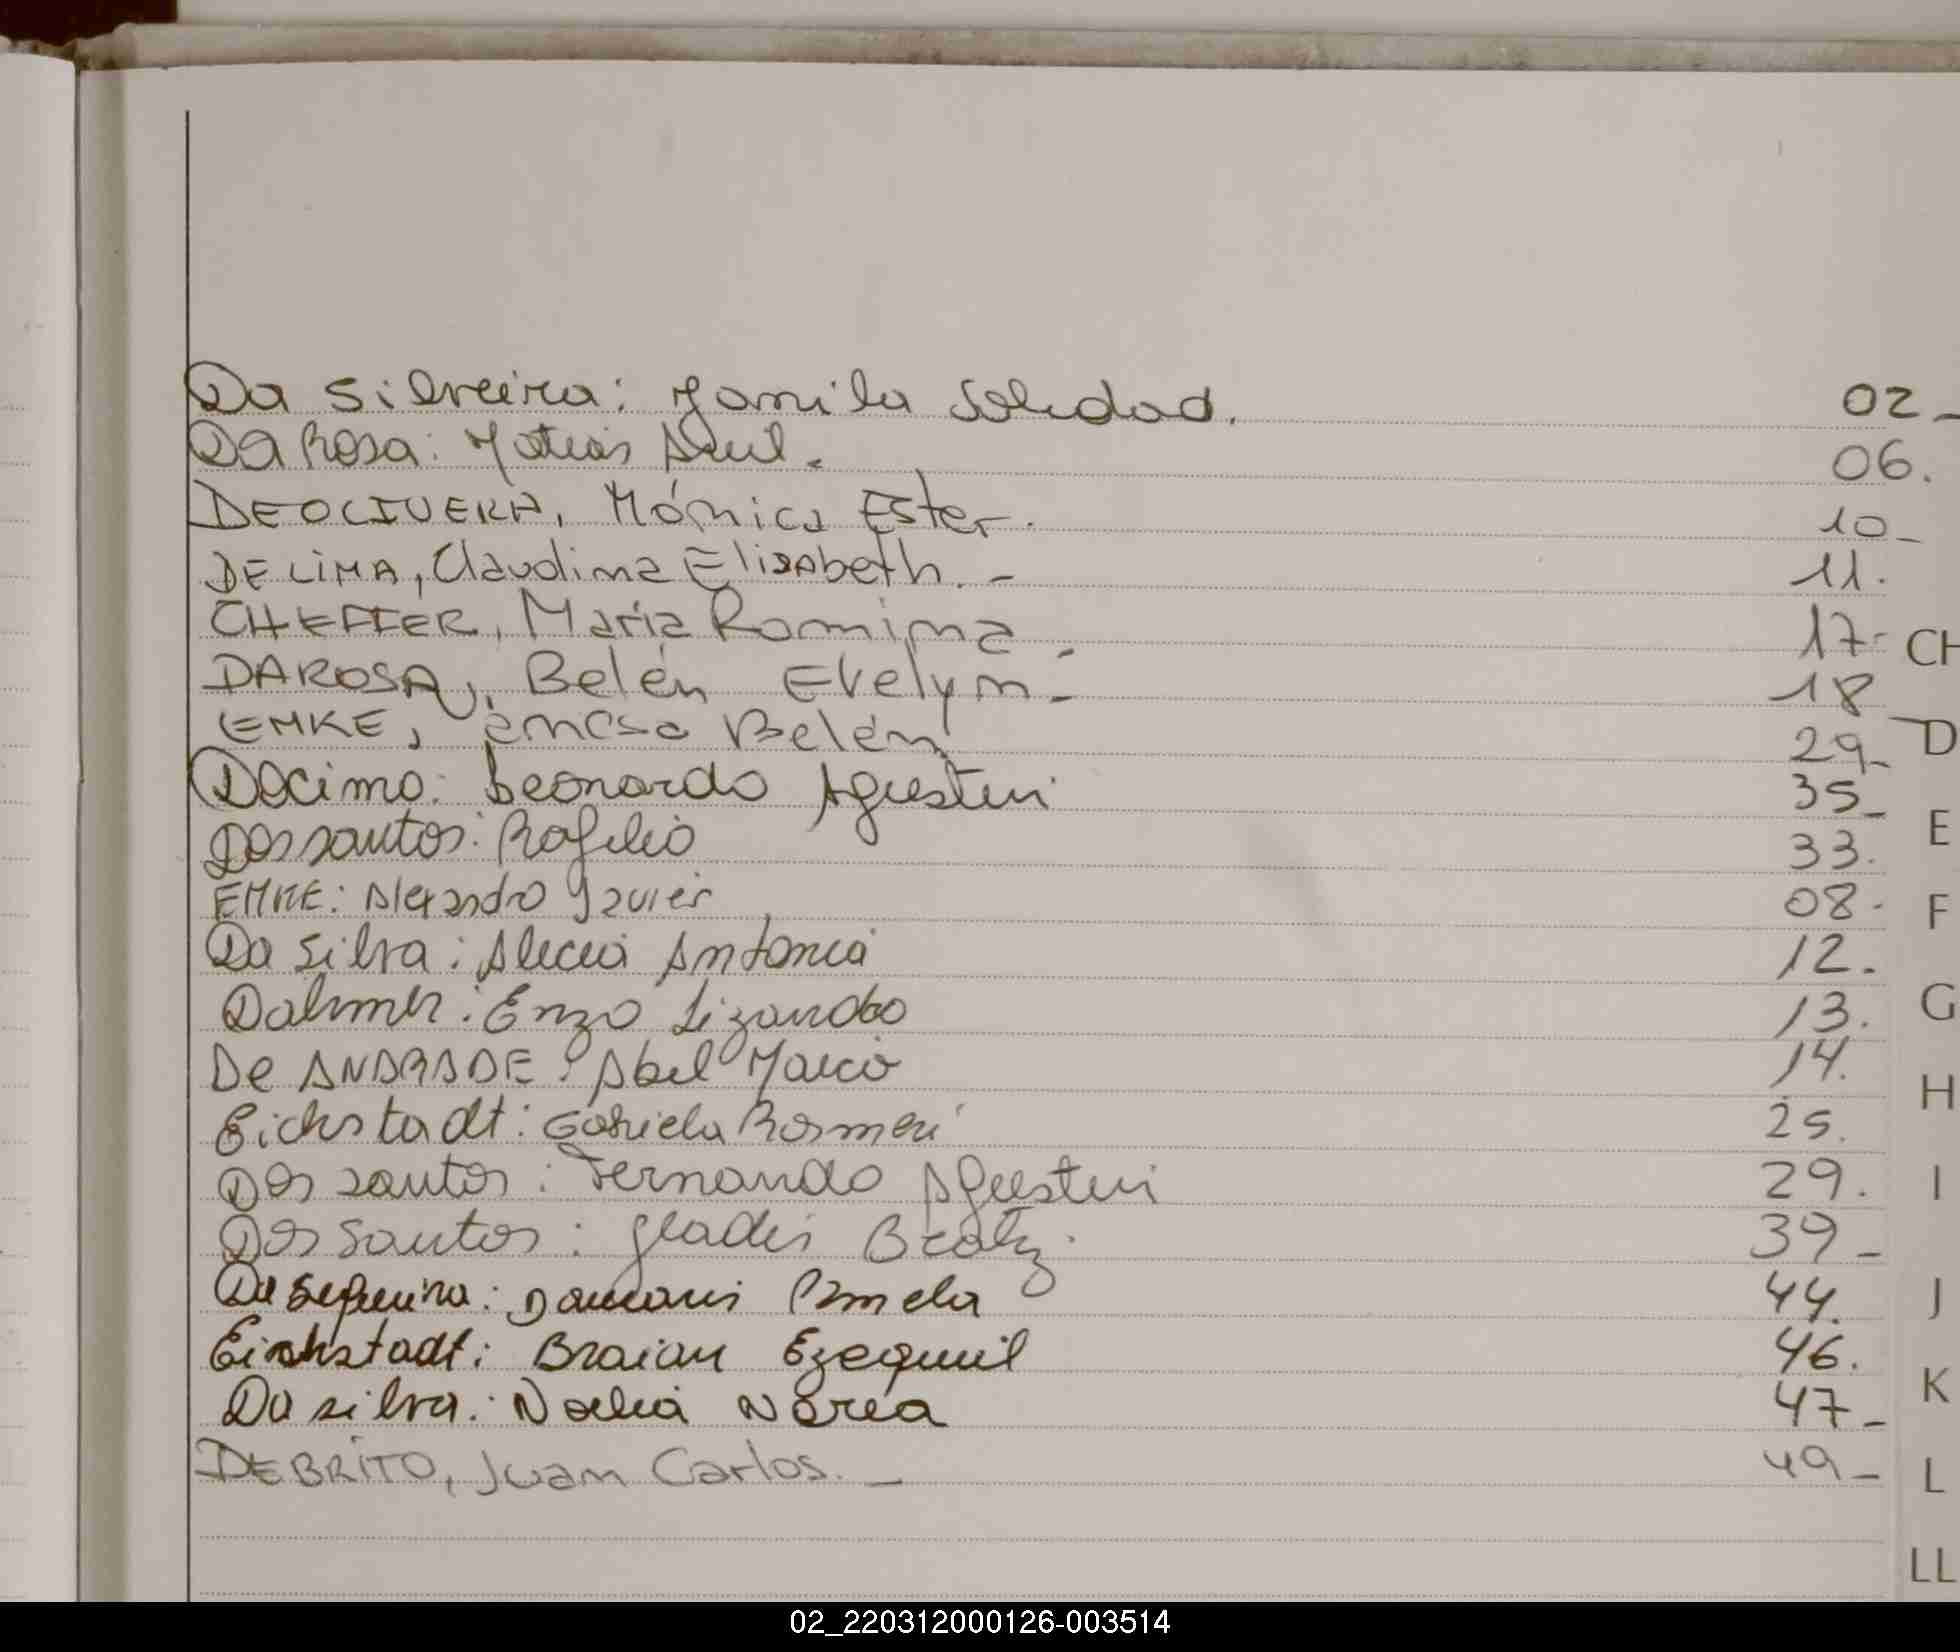 Da Silveira: Yamila Soledad. 02_
DA Rosa: Matias Saul. 06.
DEOLIVERA, Mónica Ester. 10_
DE LIMA, Claudina Elisabeth. - 11.
CHEFFER, Maria Romina. 17- CH
DAROSA, Belén Evelyn- 18
EMKE, Belén 29_ D
Décimo: Leonardo Agustin 35_
Dos santos: Rogelio 33. E
EMKE: Alexandro Javier 08. F
Da Silva: Alicia Antonia 12.
Dahmer: Enzo Lizandro 13. G
De ANDRADE: Abel Marcio 14.
Eichstadt: Gabriela Rosmeri 25. H
Dos santos: Fernando Agustin 29. I
Dos Santos: Gladis Beatriz. 39_
Da Sequeira: Damaris Pamela 44. J
Eichstadt: Braian Ezequiel 46.
Da silva: Noelia Nerea 47_ K
DEBRITO, Juan Carlos._ 49_ L
LL
02_220312000126-003514